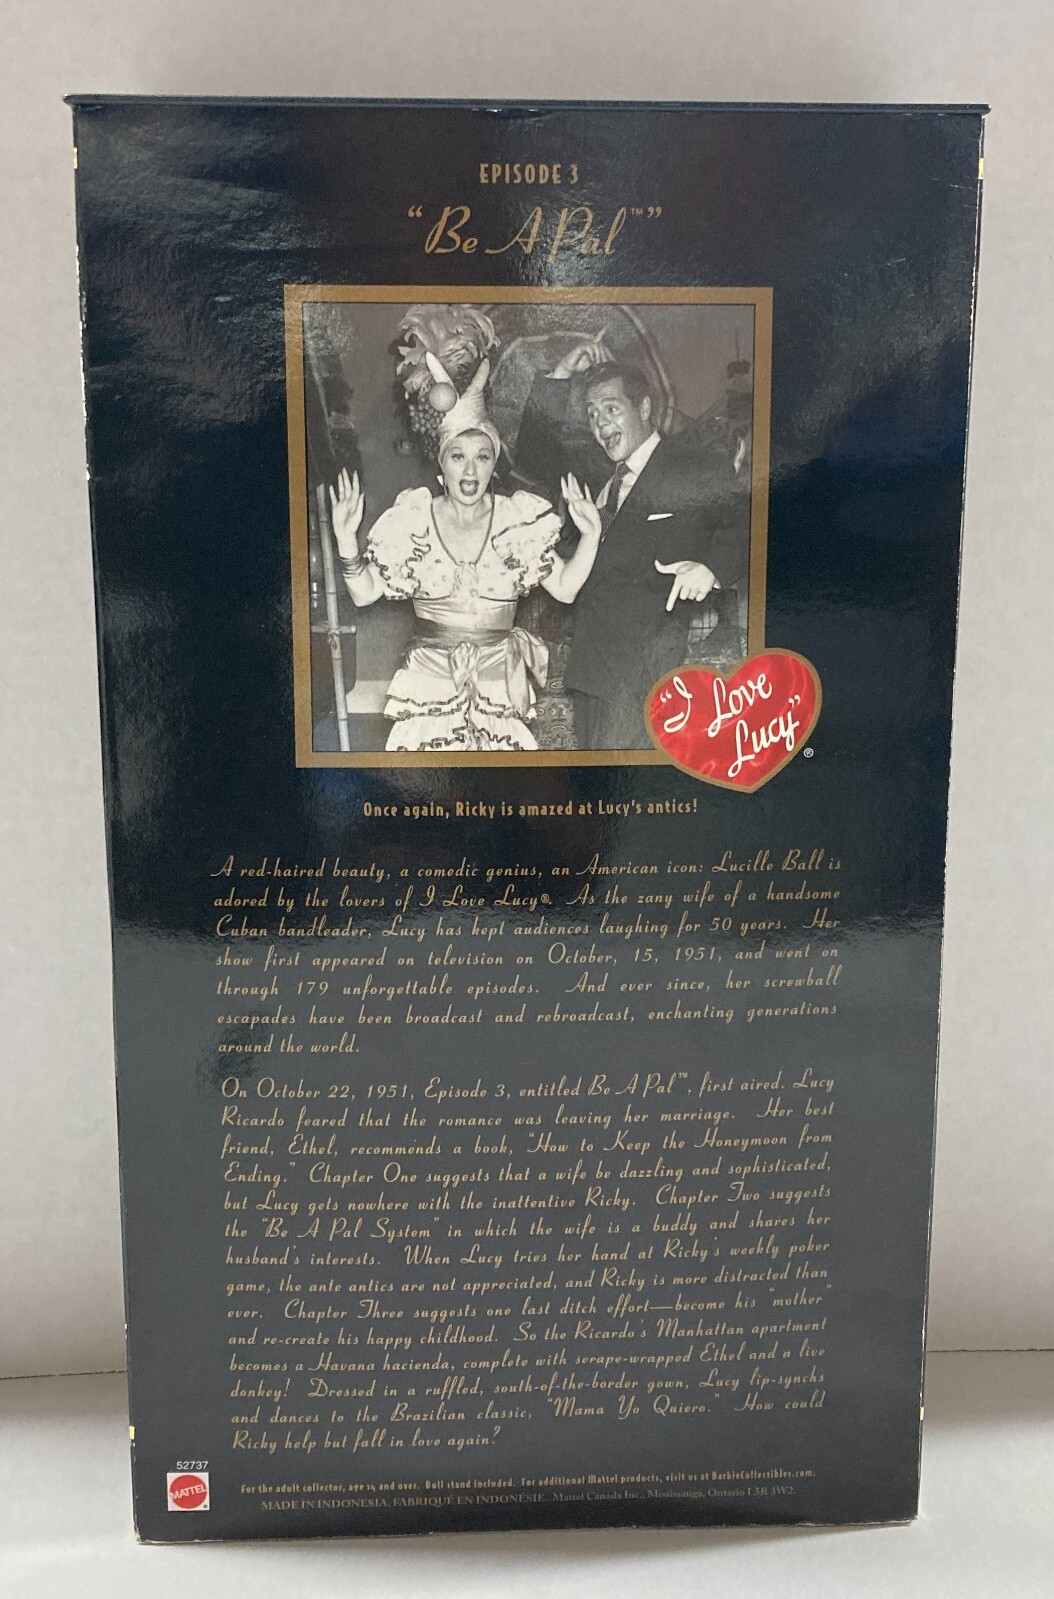 EPISODE 3
“Be A Pal™”
“I Love Lucy” ®
Once again, Ricky is amazed at Lucy's antics!
A red-haired beauty, a comedic genius, an American icon: Lucille Ball is
adored by the lovers of I Love Lucy®. As the zany wife of a handsome
Cuban bandleader, Lucy has kept audiences laughing for 50 years. Her
show first appeared on television on October, 15, 1951, and went on
through 179 unforgettable episodes. And ever since, her screwball
escapades have been broadcast and rebroadcast, enchanting generations
around the world.
On October 22, 1951, Episode 3, entitled Be A Pal™, first aired. Lucy
Ricardo feared that the romance was leaving her marriage. Her best
friend, Ethel, recommends a book, “How to Keep the Honeymoon from
Ending.” Chapter One suggests that a wife be dazzling and sophisticated,
but Lucy gets nowhere with the inattentive Ricky. Chapter Two suggests
the “Be A Pal System” in which the wife is a buddy and shares her
husband's interests. When Lucy tries her hand at Ricky's weekly poker
game, the ante antics are not appreciated, and Ricky is more distracted than
ever. Chapter Three suggests one last ditch effort—become his “mother”
and re-create his happy childhood. So the Ricardo's Manhattan apartment
becomes a Havana hacienda, complete with serape-wrapped Ethel and a live
donkey! Dressed in a ruffled, south-of-the-border gown, Lucy lip-synchs
and dances to the Brazilian classic, “Mama Yo Quiero.” How could
Ricky help but fall in love again?
52737
MATTEL
For the adult collector, age 14 and over. Doll stand included. For additional Mattel products, visit us at BarbieCollectibles.com.
MADE IN INDONESIA. FABRIQUÉ EN INDONÉSIE. Mattel Canada Inc., Mississauga, Ontario L5R 3W2.